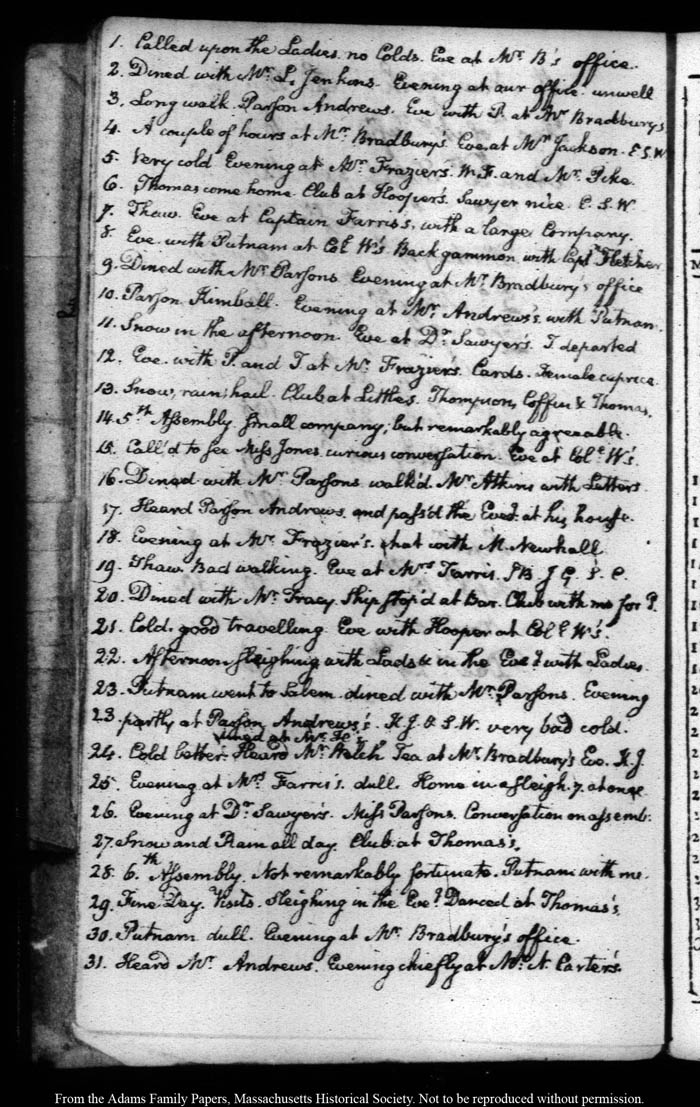 1. Called upon the Ladies. no Colds. Eve at Mr. B's office.
2. Dined with Mr. L. Jenkins. Evening at our office. unwell
3. Long walk. Parson Andrews. Eve with P. at Mr Bradbury's
4. A couple of hours at Mr. Bradbury's. Eve. at Mrs Jackson. E.S.W
5. Very cold Evening at Mr. Frazier's. W.F. and Mr. Pike.
6. Thomas come home. Club at Hooper's. Sawyer nice. E.S.W.
7. Thaw. Eve at Captain Farris's, with a large Company.
8. Eve. with Putnam at Col. W's. Back gammon with Captn Fletcher
9. Dined with Mr Parsons. Evening at Mr. Bradbury's office
10. Parson Kimball. Evening at Mr. Andrews's. with Putnam.
11. Snow in the afternoon. Eve at Dr. Sawyer's. T departed
12. Eve. with P. and T. at Mr. Frazier's. Cards. Female caprice.
13. Snow, rain, hail. Club at Little's. Thompson, Coffin & Thomas.
14. 5th Assembly. small company; but remarkably agreeable.
15. Call'd to see Miss Jones. curious conversation. Eve at Col. W's.
16. Dined with Mr Parsons. walk'd. Mrs Atkins with Letters.
17. Heard Parson Andrews. and pass'd the Eveg. at his house.
18. Evening at Mr. Frazier's. chat with M. Newhall
19. Thaw. Bad walking. Eve at Mrs Farris.
20. Dined with Mr. Tracy. Ship stop'd at Bar. Club with me for P.
21. Cold. good travelling. Eve with Hooper at Col. W's.
22. Afternoon sleighing with Lads & in the Eveg. with Ladies.
23. Putnam went to Salem. dined with Mr. Parsons. Evening
23. partly at Parson Andrews's. H.J. & S.W. very bad cold.
dined at Mr.
24. Cold better. Heard Mr. Welch Tea at Mr. Bradbury's Eve. H.J.
25. Evening at Mrs Farris's. dull. Home in a sleigh. 7. at once
26. Evening at Dr. Sawyer's. Miss Parsons. Conversation on assemb:
27. Snow and Rain all day. Club at Thomas's.
28. 6.th Assembly. Not remarkably fortunate. Putnam with me.
29. Fine Day. Visits. Sleighing in the Eveg. Danced at Thomas's.
30. Putnam dull. Evening at Mr. Bradbury's office.
31. Heard Mr. Andrews. Evening chiefly at Mr. N. Carter's.
From the Adams Family Papers, Massachusetts Historical Society. Not to be reproduced without permission.